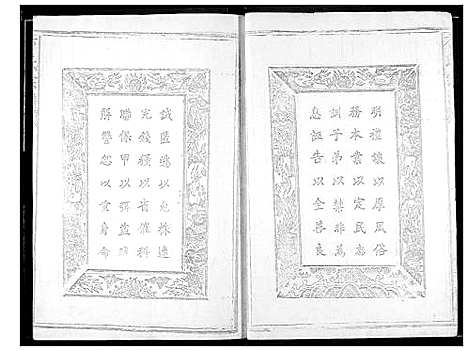 明禮讓以厚風俗
務本業以定民志
訓子弟以禁非為
息誣告以全善良
誡匿逃以免株連
完錢糧以省催科
聯保甲以弭盜賊
解讐忿以重身命